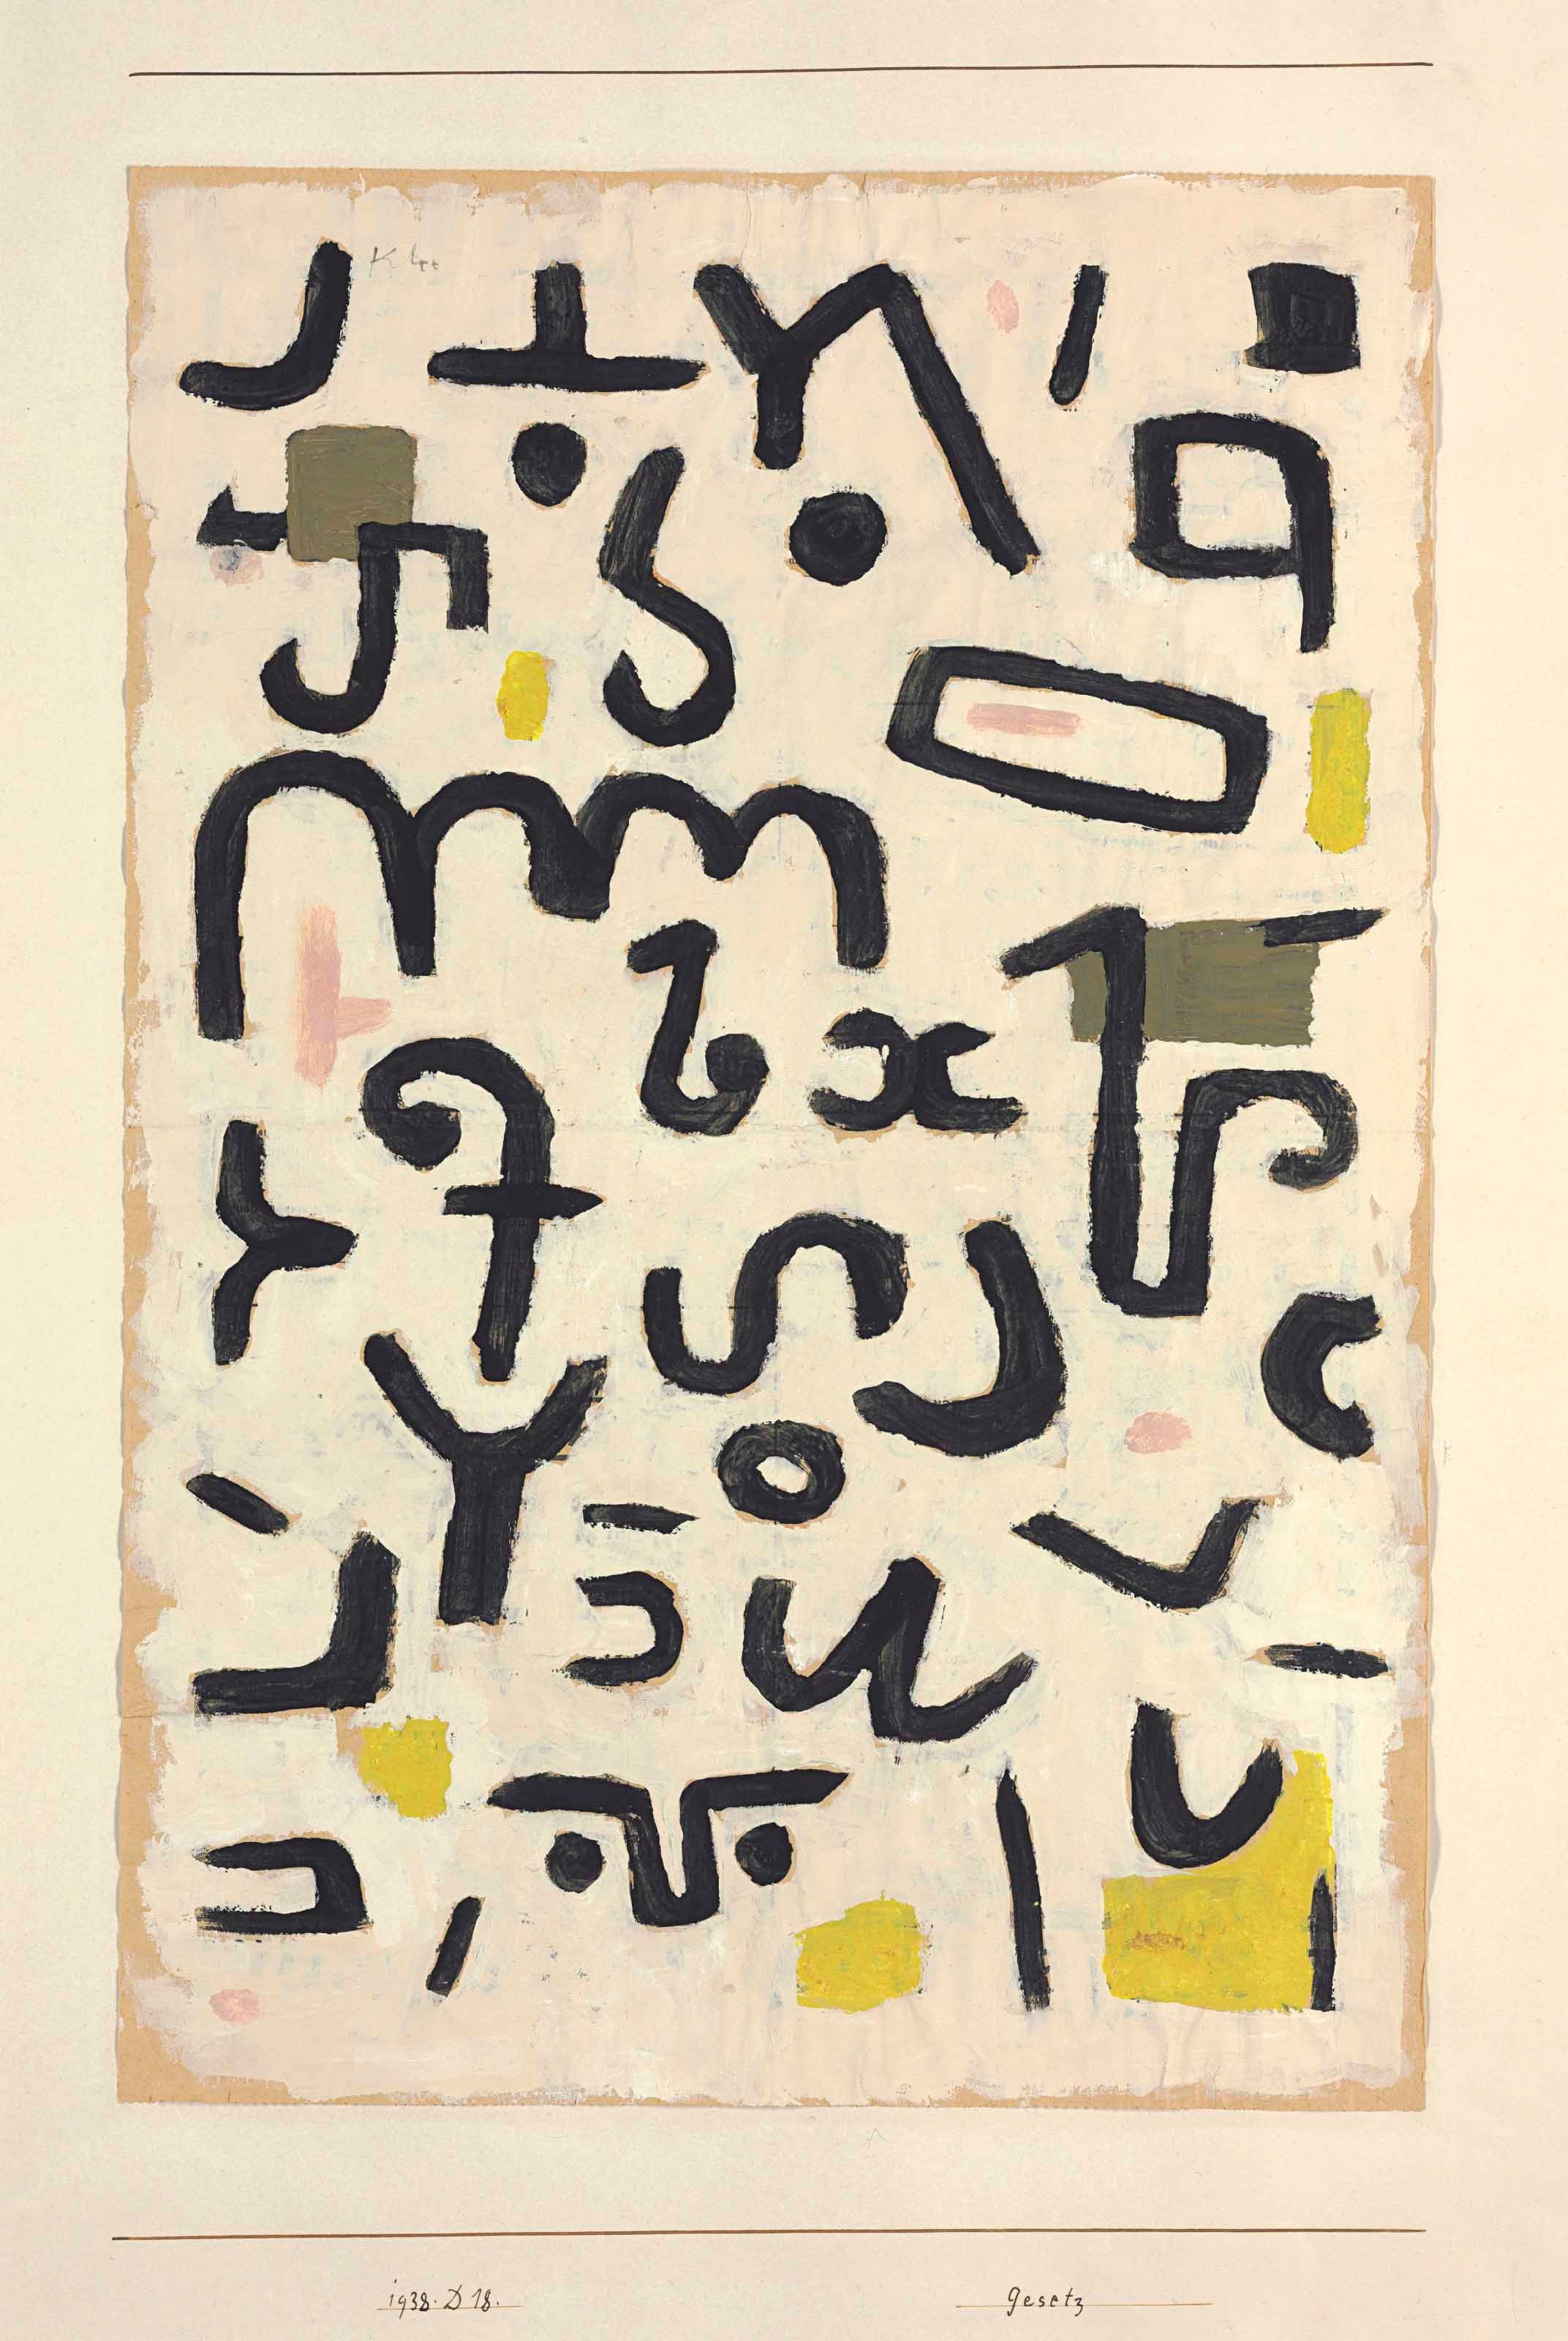 Klee
1938. D 18.
Gesetz